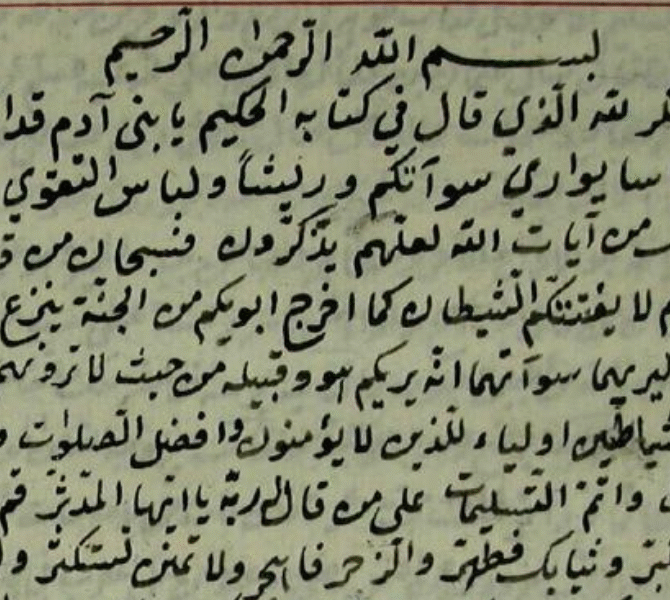 بسم الله الرحمن الرحيم
لله الذي قال في كتابه الحكيم يا بني آدم قد ا
سا يواري سوآتكم وريشاً ولباس التقوي
من آيات الله لعلهم يذكّرون فسبحان من
لا يفتننكم الشيطان كما اخرج ابويكم من الجنّة ينزع
ليريهما سوآتهما انّه يريكم هو وقبيله من حيث لا ترونهم
شياطين اولياء للذين لا يؤمنون وافضل الصلوات
واتمّ التسليمات علي من قال له ربّه يا ايّها المدّثّر قم
وثيابك فطهّر والرّجز فاهجر ولا تمنن تستكثر و